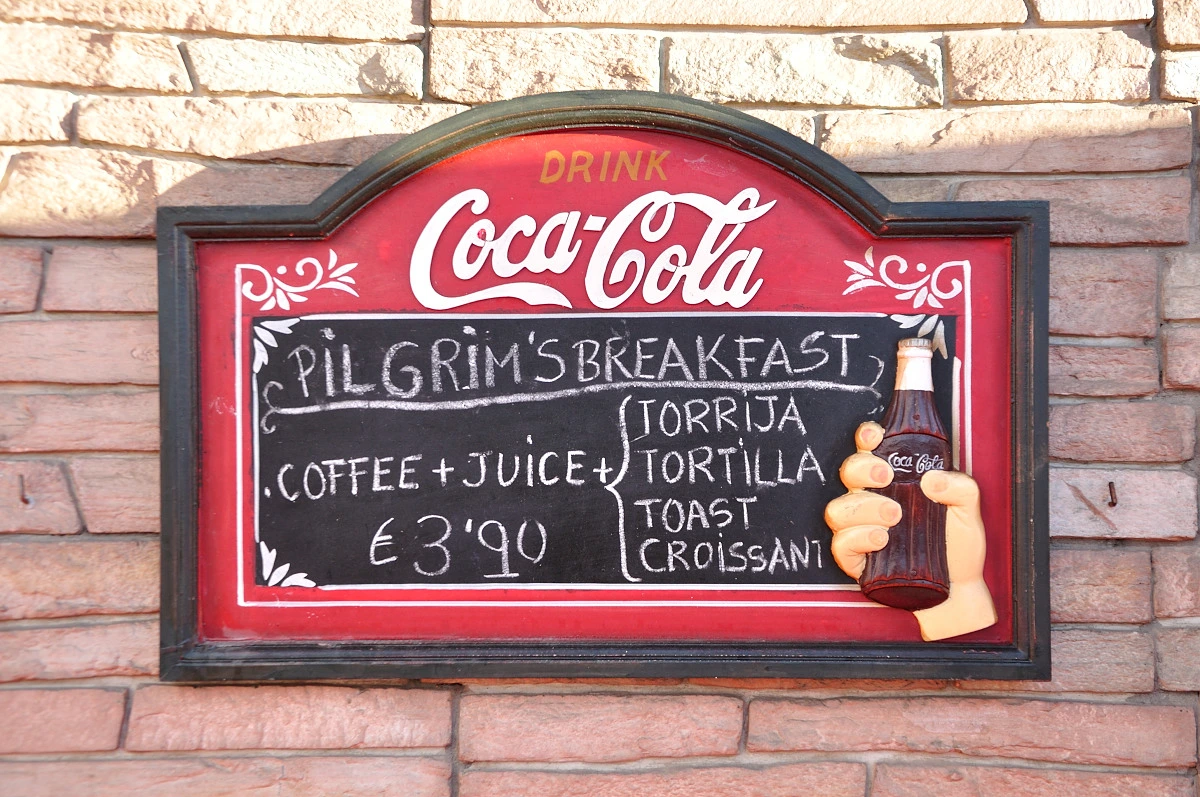 DRINK
Coca-Cola
PILGRIM'S BREAKFAST
COFFEE + JUICE +
TORRIJA
TORTILLA
TOAST
CROISSANT
€3'90
Coca-Cola